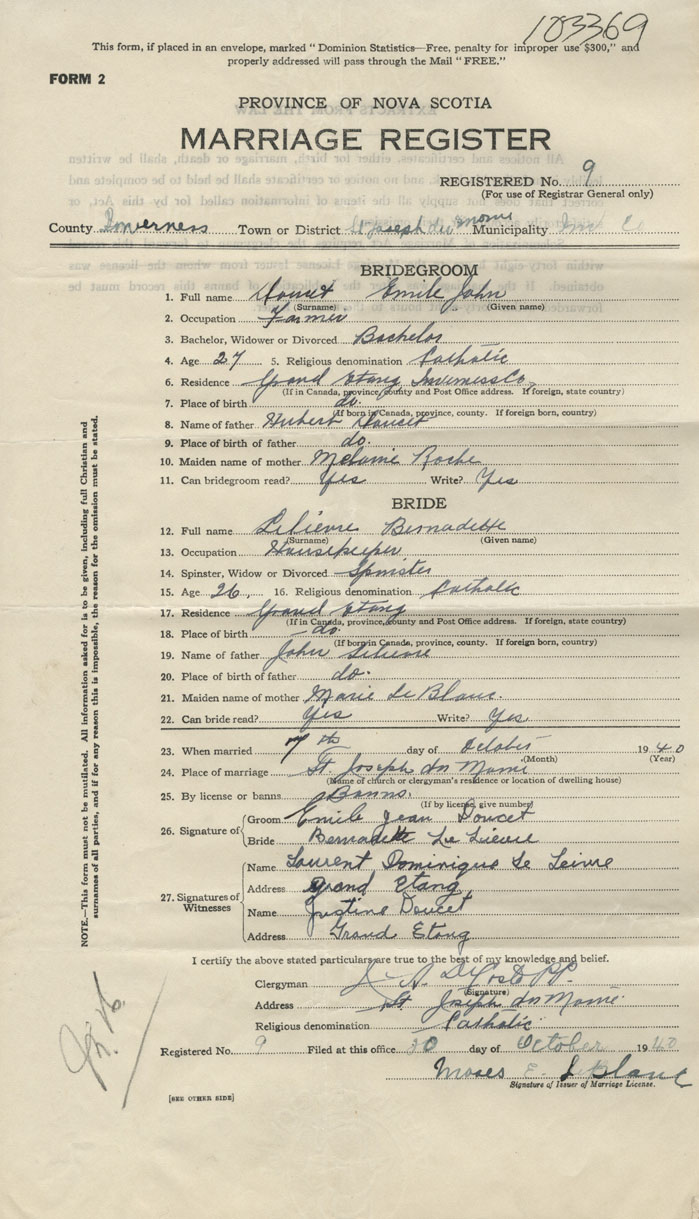 103369
This form, if placed in an envelope, marked "Dominion Statistics—Free, penalty for improper use $300," and
properly addressed will pass through the Mail "FREE."
FORM 2
PROVINCE OF NOVA SCOTIA
MARRIAGE REGISTER
REGISTERED No. 9
(For use of Registrar General only)
County Inverness Town or District St Joseph du Moine Municipality
BRIDEGROOM
1. Full name Doucet Emile John
(Surname) (Given name)
2. Occupation Farmer
3. Bachelor, Widower or Divorced Bachelor
4. Age 27 5. Religious denomination Catholic
6. Residence Grand Etang Inverness Co.
(If in Canada, province, county and Post Office address. If foreign, state country)
7. Place of birth do.
(If born in Canada, province, county. If foreign born, country)
8. Name of father Hubert Doucet
9. Place of birth of father do.
10. Maiden name of mother Melanie Roche
11. Can bridegroom read? Yes Write? Yes
BRIDE
12. Full name Lelievre Bernadette
(Surname) (Given name)
13. Occupation Housekeeper
14. Spinster, Widow or Divorced Spinster
15. Age 26, 16. Religious denomination Catholic
17. Residence Grand Etang
(If in Canada, province, county and Post Office address. If foreign, state country)
18. Place of birth do.
(If born in Canada, province, county. If foreign born, country)
19. Name of father John Lelievre
20. Place of birth of father do.
21. Maiden name of mother Marie Le Blanc.
22. Can bride read? Yes Write? Yes
23. When married 7th day of October 1940
(Month) (Year)
24. Place of marriage St Joseph du Moine
(Name of church or clergyman's residence or location of dwelling house)
25. By license or banns Banns.
(If by license, give number)
26. Signature of
Groom Emile Jean Doucet
Bride Bernadette Le Lievre
27. Signatures of Witnesses
Name Laurent Dominique Le Leivre
Address Grand Etang
Name Justine Doucet
Address Grand Etang
I certify the above stated particulars are true to the best of my knowledge and belief.
Clergyman J. A. DeCoste PP.
(Signature)
Address St Joseph du Moine
Religious denomination Catholic
Registered No. 9 Filed at this office 30 day of October 1940
Moses E. LeBlanc
Signature of Issuer of Marriage License.
[SEE OTHER SIDE]
NOTE.—This form must not be mutilated. All information asked for is to be given, including full Christian and
surnames of all parties, and if for any reason this is impossible, the reason for the omission must be stated.